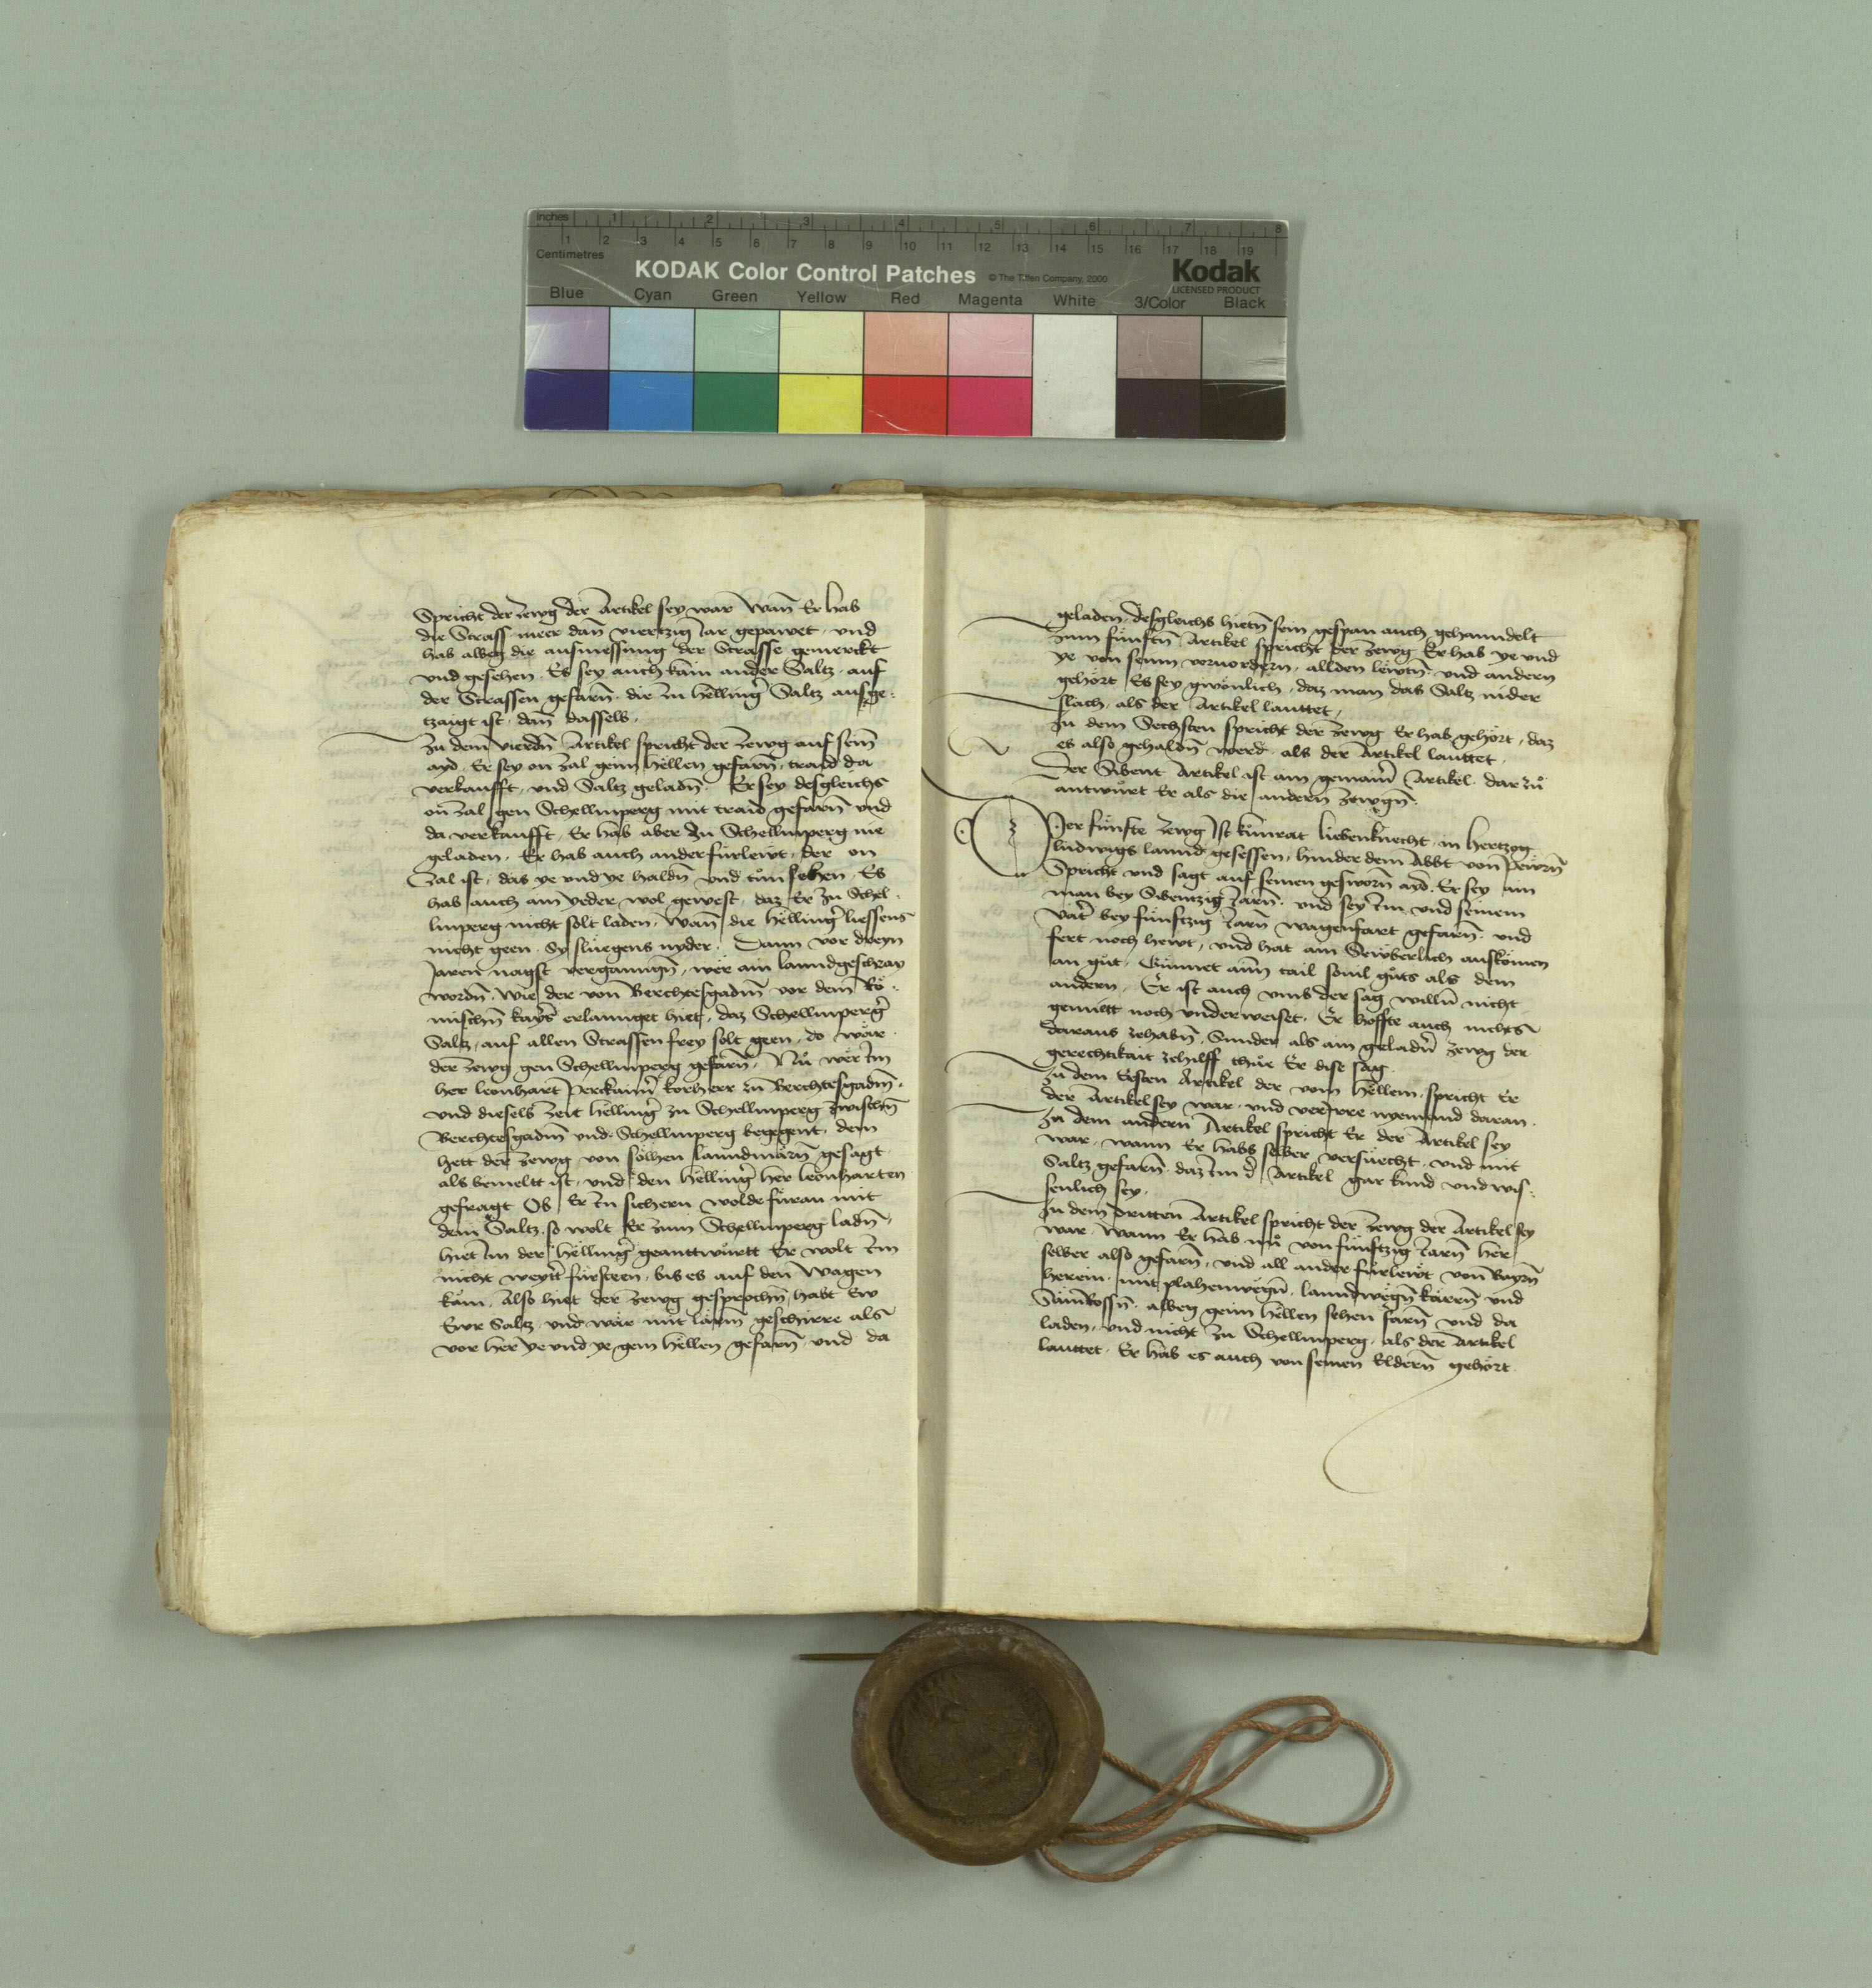 Inches 1 2 3 4 5 6 7 8
1 2 3 4 5 6 7 8 9 10 11 12 13 14 15 16 17 18 19
Centimetres
KODAK Color Control Patches © The Tiffen Company, 2000 Kodak
LICENSED PRODUCT
Blue Cyan Green Yellow Red Magenta White 3/Color Black
Spricht der zewg der Artikel sey war Wañ Er hab
die Strass meer dañ viertzig Jar gepawet und
hab albeg die ausmessung der Strasse gemerckt
und gesehen. Es sey auch kain ander Saltz auf
der Strassen gefarñ die Im hellinger Saltz ausge-
tzaigt ist, dañ dasselb.
Zu dem vierdñ Artikel spricht der Zewg auf sein
ayd. Er sey on zal genn hellen gefarñ, traid da
verkaufft, und Saltz geladñ. Er sey desgleichs
on zal gen Schellmperg mit traid gefarñ und
da verkaufft. Er hab aber zu Schellmperg nie
geladen. Er hab auch ander fürlewt, der on
zal ist, das ye und ye haldñ und tun sehen. Es
hab auch ain yeder wol gewest, daz Er zu Schel-
lmperg nicht solt laden. Wañ die hellinger liessens
nicht geen. Sy sluegens nyder. Dann vor dreyn
Jaren nagst vergangñ, wer ain lanndgeschray
wordñ. Wie der von Berchtesgadm vor dem Rö-
mischñ kayser erlannget hiet, daz Schellmperger
Saltz auf allen Strassen frey solt geen, do wär
der zewg gen Schellmperg gefarñ. Nu wer Im
her leonhart Perckaimer korherr zu Berchtesgadm
und dieselb zeit hellinger zu Schellmperg zwischñ
Berchtesgadm und Schellmperg begegent, dem
hett der zewg von sölhen lanndmärñ gesagt
als bemeltt ist, und den hellinger her leonharten
gefragt Ob Er In sichern wolde füran mit
dem Saltz, so wolt Er zum Schellmperg ladñ,
hiet Im der hellinger geanttwurtt Er wolt Im
nicht weytter fürsteen, bis es auf den Wagen
käm. Also hiet der zewg gesprochñ, habt Ew
Ewr Saltz und wär mit lärm geschirre als
vor her ye und ye gem hellen gefarñ und da
geladen, desgleichs hietñ sein gespan auch gehanndelt
Zum fünftñ Artikel spricht der zewg Er hab ye und
ye von seinn vernordern, allden lewtñ und andern
gehört Es sey gwönlich, daz man das Saltz nider
slach, als der Artikel lauttet,
Zu dem Sechsten spricht der zewg Er hab gehört, daz
es also gehaldñ werd als der Artikel lauttet.
Der Sibent Artikel ist ain gemainer Artikel. dar zu
antwurt Er als die andern zewgñ.
Der fünfte zewg Ist künrat liebenknecht in hertzog
ludwigs lannd gesessen, hinder dem Abbt von Pewrñ
Spricht und sagt auf seinen geswornñ ayd. Er sey ain
man bey Sibentzig Jarñ. und sey Im und seinem
vater bey fünftzig Jarñ wagenfart gefarñ. und
fert noch hewt, und hat ain Sewberlich auskömen
an gut. Günnet aim tail souil guts als dem
andern. Er ist auch umb der sag willñ nicht
gemiett noch underweiset. Er hoffte auch nichts
daraus zehabñ, Sunder als ain geladner zewg der
gerechtikait zehilff thur Er dise sag.
Zu dem Ersten Artikel der vom hellem, spricht Er
der Artikel sey war und verIrre nyemand daran.
Zu dem andern Artikel spricht Er der Artikel sey
war, wann Er habs selber versuecht, und mit
Saltz gefarñ. daz Im der Artikel gar kund und wis-
senlich sey.
Zu dem dritten Artikel spricht der zewg der Artikel sey
war. Wann Er hab nu von fünftzig Jarñ her
selber also gefarñ, und all ander fürlewt von Bayrñ
herein mit plahenwegñ, lanndwegñ kärrñ und
Sämrossñ. albeg geim hellen sehen farñ und da
laden, und nicht zu Schellmperg, als der Artikel
lauttet. Er hab es auch von seinen Eldern gehört.